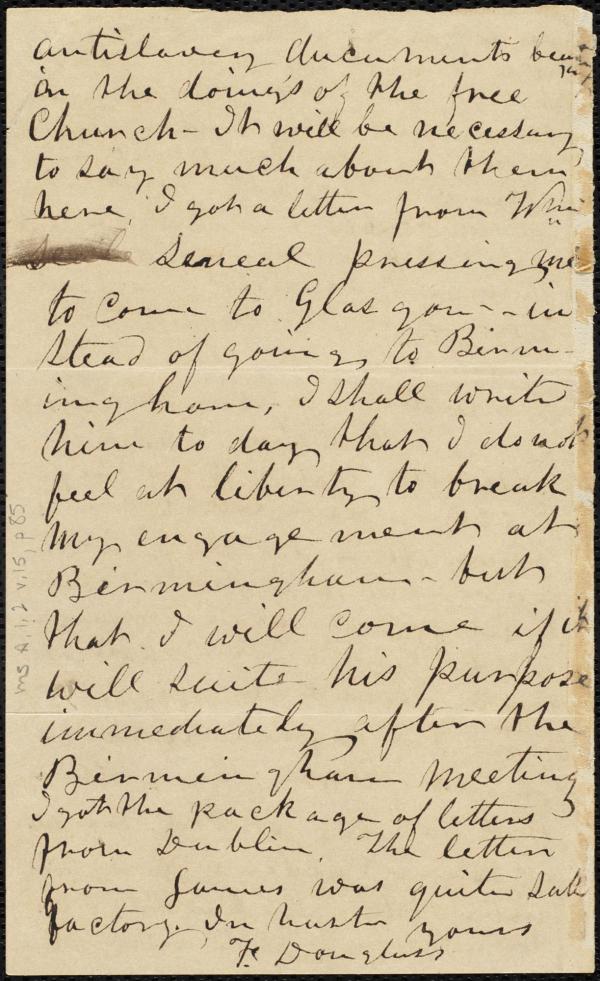 antislavery documents
in the doings of the free
Church - It will be necessary
to say much about them
here, I got a letter from Wm
Smeal pressing me
to come to Glasgow - in
stead of going to Birm-
ingham, I shall write
him to day that I do not
feel at liberty to break
my engagement at
Birmingham - but
that I will come if it
will suite his purpose
immediately after the
Birmingham meeting
I got the package of letters
from Dublin. The letter
from James was quite satis
factory. In haste yours
F. Douglass
ms A.1.2 v.15, p 85